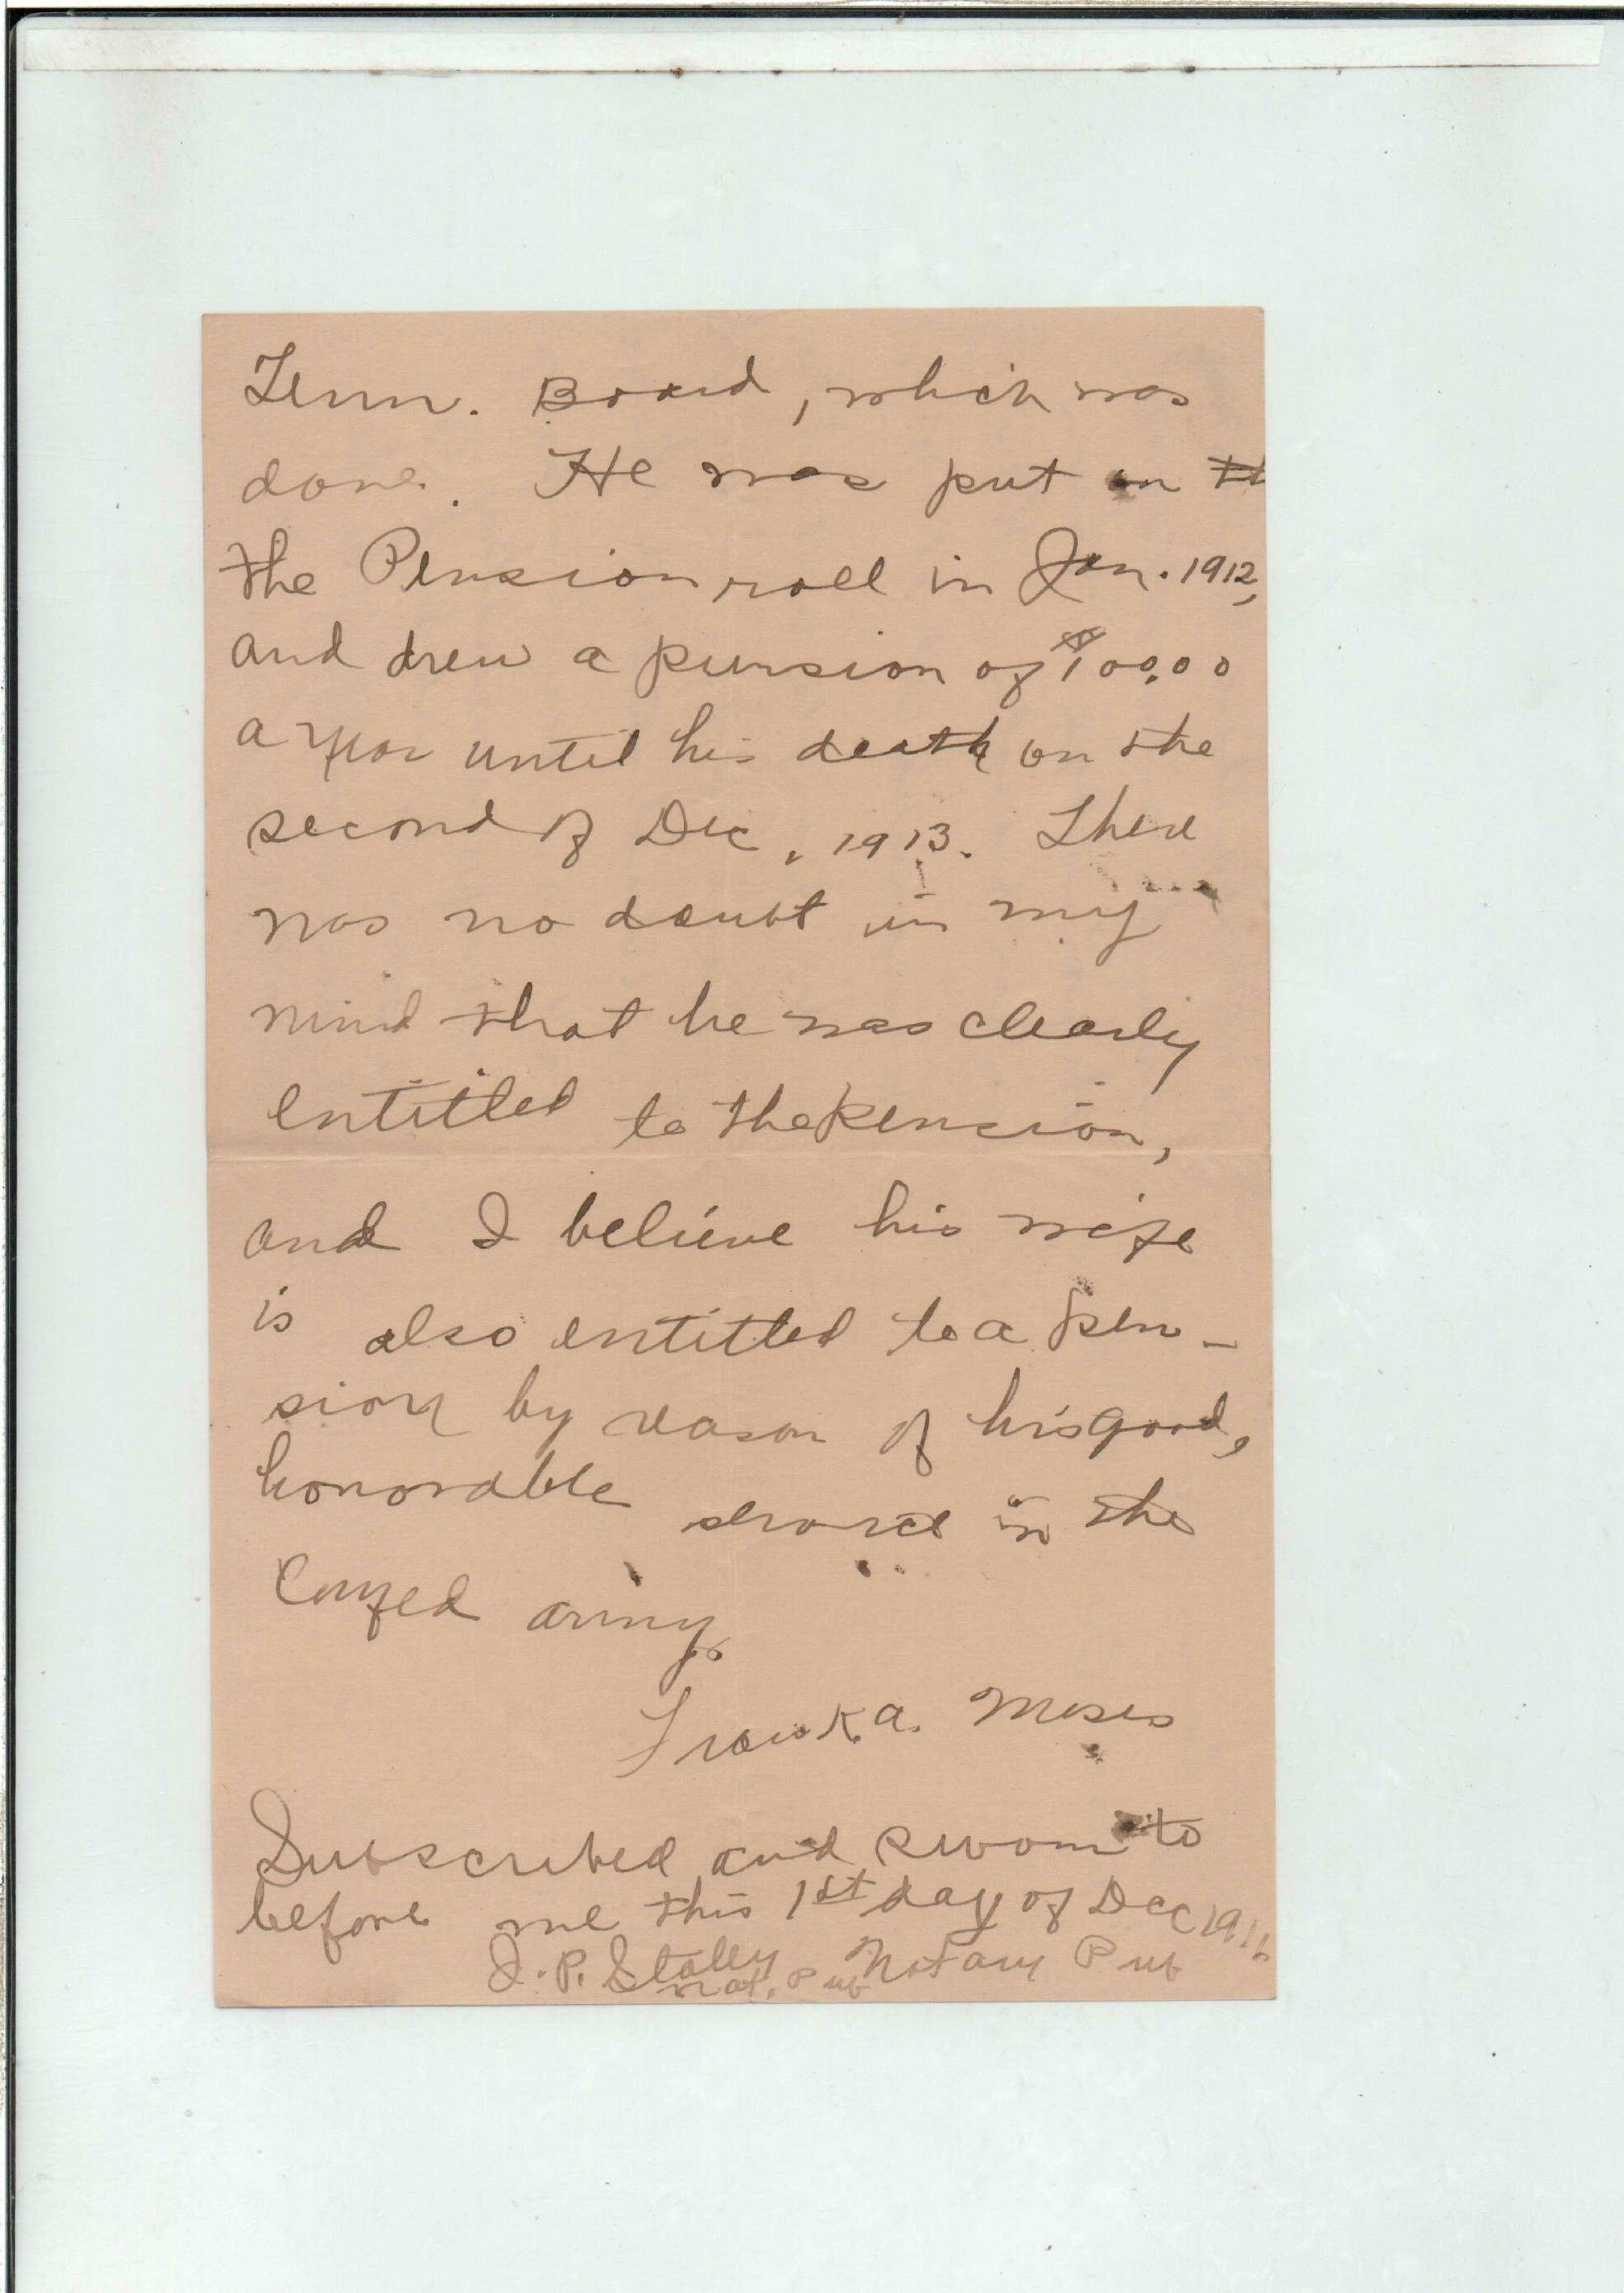 Tenn. Board, which was
done. He was put on th
the Pension roll in Jan. 1912,
and drew a pension of $100.00
a year until his death on the
second of Dec, 1913. There
was no doubt in my
mind that he was clearly
entitled to the Pension,
and I believe his wife
is also entitled to a pen-
sion by reason of his good,
honorable service in the
Confed army.
Frank A. Moses
Subscribed and sworn to
before me this 1st day of Dec 1916
J. P. Staley Notary Pub
Not. Pub